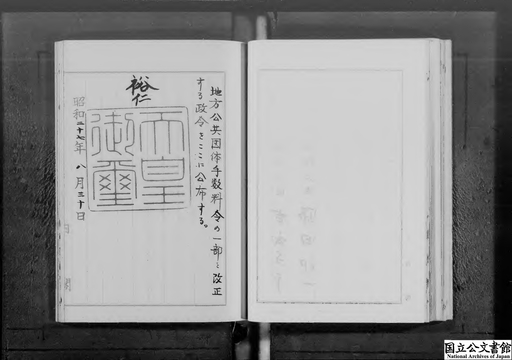 地方公共団体手数料令の一部を改正
する政令をここに公布する。
裕仁
天皇
御璽
昭和二十七年八月三十日
国立公文書館
National Archives of Japan